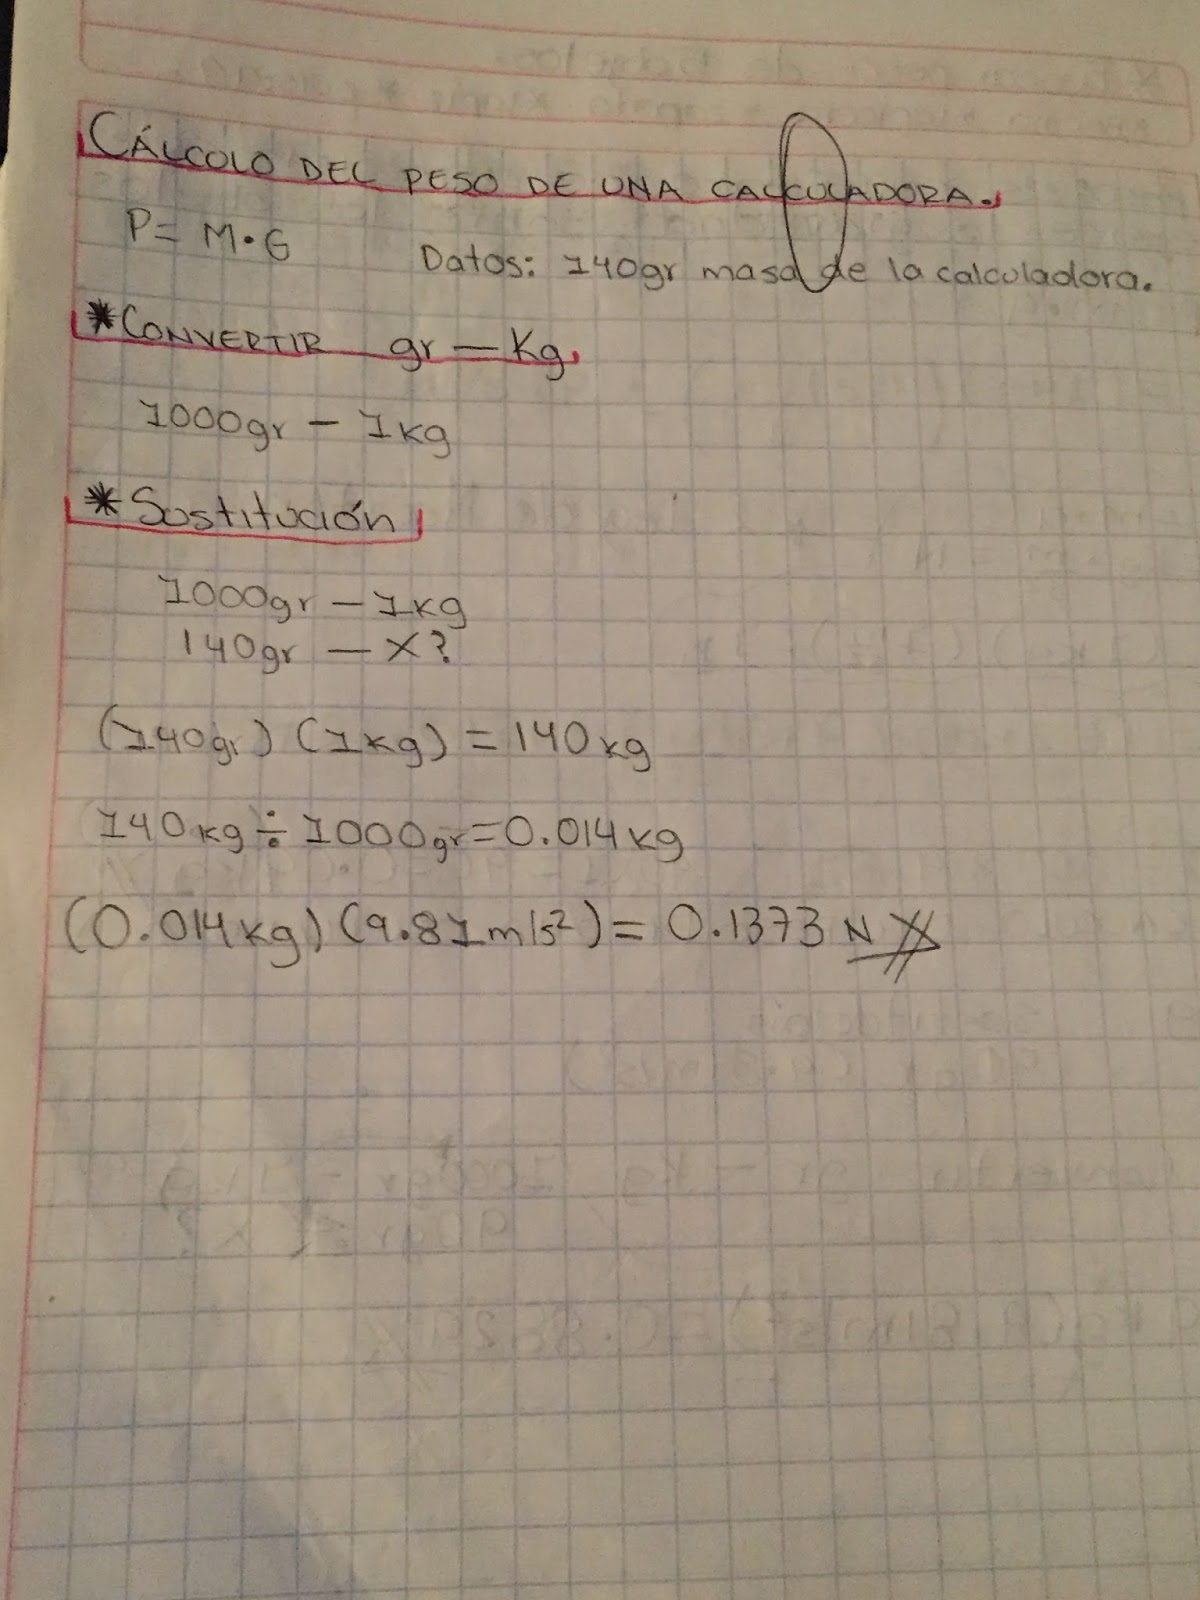 CÁLCULO DEL PESO DE UNA CALCULADORA.
P= M·G
Datos: 140gr masa de la calculadora.
*CONVERTIR gr — Kg
1000gr — 1kg
*Sustitución
1000gr — 1kg
140gr — X?
(140gr) (1kg) = 140kg
140kg ÷ 1000gr = 0.014kg
(0.014kg) (9.81m/s²) = 0.1373 N